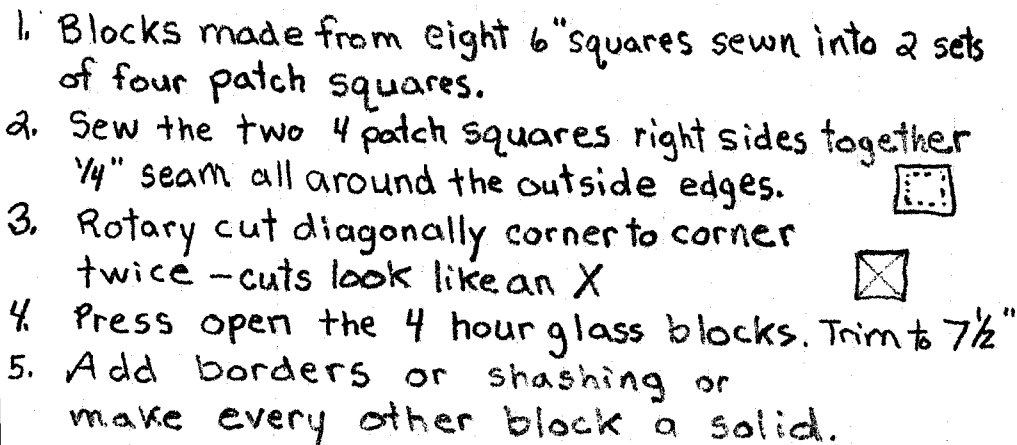 1. Blocks made from eight 6" squares sewn into 2 sets
of four patch squares.
2. Sew the two 4 patch squares right sides together
1/4" seam all around the outside edges.
3. Rotary cut diagonally corner to corner
twice – cuts look like an X
4. Press open the 4 hour glass blocks. Trim to 7 1/2"
5. Add borders or shashing or
make every other block a solid.